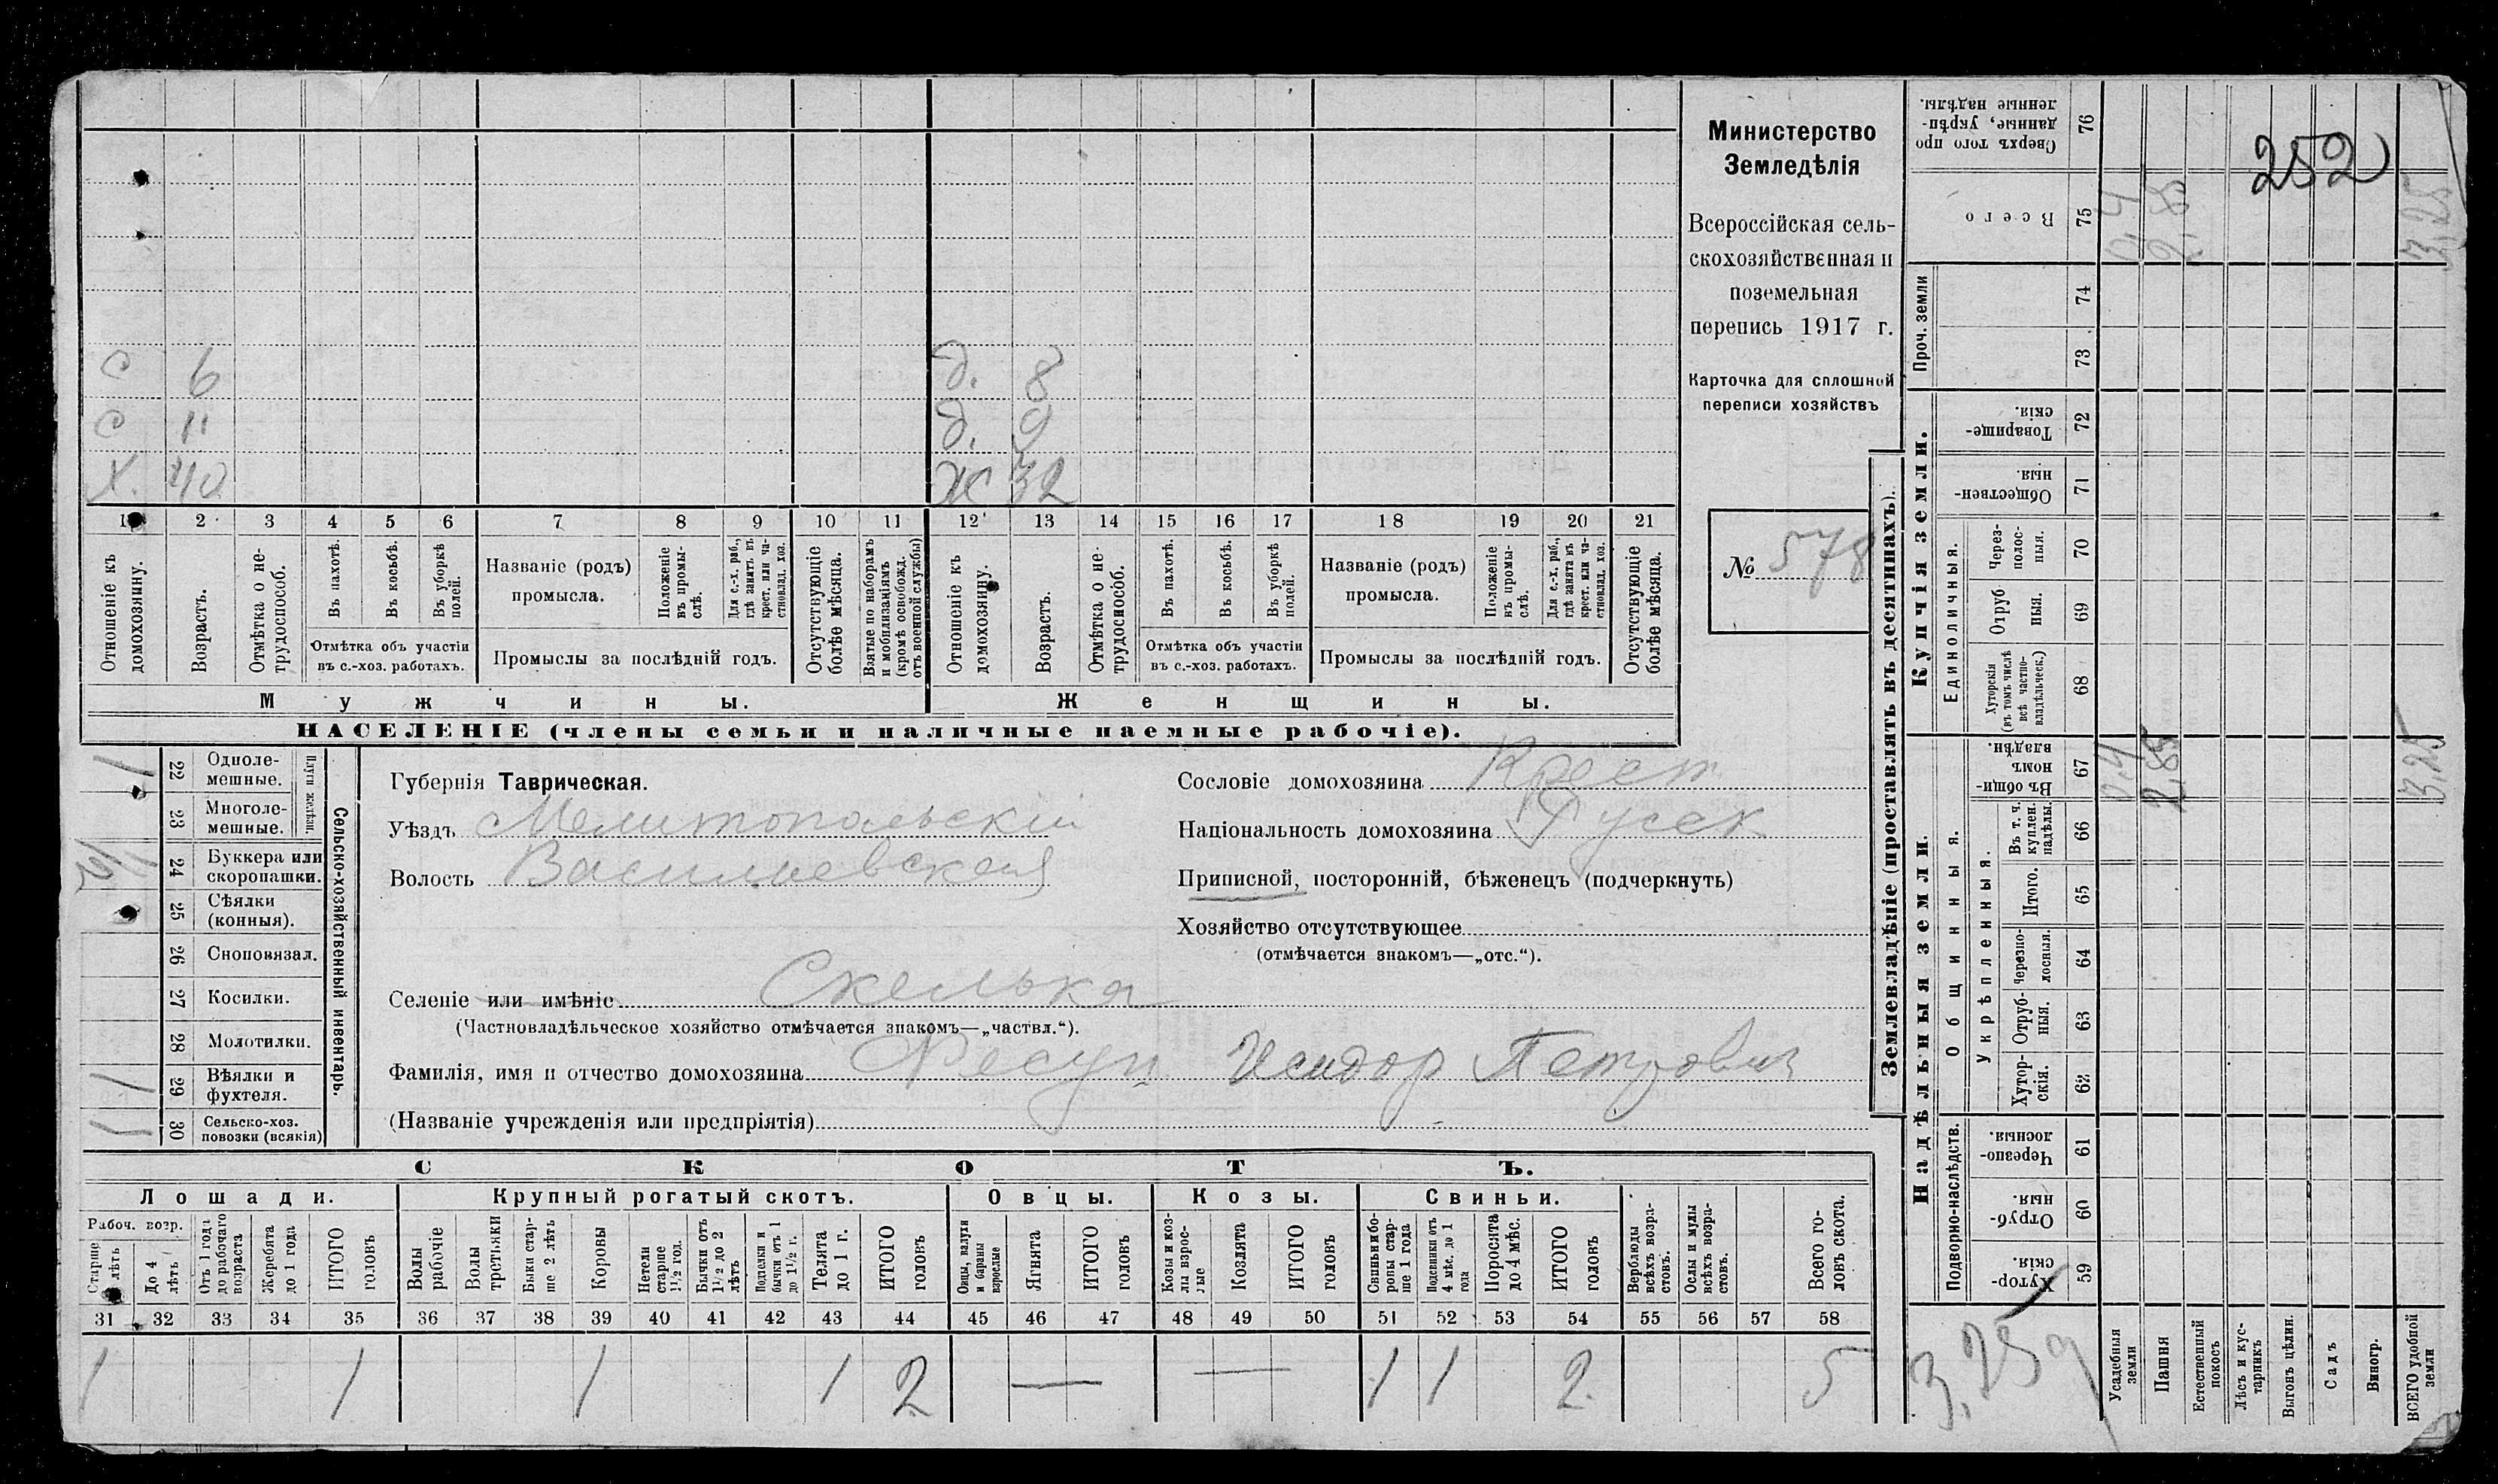 252
Министерство
Земледѣлія
Всероссійская сель-
скохозяйственная и
поземельная
перепись 1917 г.
Карточка для сплошной
переписи хозяйствъ
№ 578
с 6 д. 8
с 11 д. 9
Х. 40 Ж 32
1 2 3 4 5 6 7 8 9 10 11 12 13 14 15 16 17 18 19 20 21
Отношеніе къ домохозяину.
Возрастъ.
Отмѣтка о не-трудоспособ.
Въ пахотѣ.
Въ косьбѣ.
Въ уборкѣ полей.
Отмѣтка объ участіи
въ с.-хоз. работахъ.
Названіе (родъ)
промысла.
Положеніе въ промы-слѣ.
Для с.-х. раб., гдѣ занятъ въ крест. или ча-стновлад. хоз.
Промыслы за послѣдній годъ.
Отсутствующіе болѣе мѣсяца.
Взятые по наборамъ и мобилизаціямъ (кромѣ освобожд. отъ военной службы)
Отношеніе къ домохозяину.
Возрастъ.
Отмѣтка о не-трудоспособ.
Въ пахотѣ.
Въ косьбѣ.
Въ уборкѣ полей.
Отмѣтка объ участіи
въ с.-хоз. работахъ.
Названіе (родъ)
промысла.
Положеніе въ промы-слѣ.
Для с.-х. раб., гдѣ занята въ крест. или ча-стновлад. хоз.
Промыслы за послѣдній годъ.
Отсутствующіе болѣе мѣсяца.
Мужчины. Женщины.
НАСЕЛЕНІЕ (члены семьи и наличные наемные рабочіе).
Сельско-хозяйственный инвентарь.
Плуги желѣзн.
22 Одноле-мешные. 1
23 Многоле-мешные.
24 Буккера или скоропашки.
25 Сѣялки (конныя).
26 Сноповязал.
27 Косилки.
28 Молотилки.
29 Вѣялки и фухтеля. 1
30 Сельско-хоз. повозки (всякія) 1
Губернія Таврическая.
Уѣздъ Мелитопольскій
Волость Васильевская
Селеніе или имѣніе Скелька
(Частновладѣльческое хозяйство отмѣчается знакомъ—„частвл.“).
Фамилія, имя и отчество домохозяина Исидор Петрович
(Названіе учрежденія или предпріятія)
Сословіе домохозяина Крест
Національность домохозяина Русск
Приписной, посторонній, бѣженецъ (подчеркнуть)
Хозяйство отсутствующее
(отмѣчается знакомъ—„отс.“).
СКОТЪ.
Лошади. Крупный рогатый скотъ. Овцы. Козы. Свиньи.
Рабоч. возр.
Старше 4 лѣтъ
До 4 лѣтъ
Отъ 1 года до рабочаго возраста
Жеребята до 1 года
ИТОГО головъ
Волы рабочіе
Волы третьяки
Быки стар-ше 2 лѣтъ
Коровы
Нетели старше 1 1/2 год.
Бычки отъ 1 1/2 до 2 лѣтъ
Подтелки и бычки отъ 1 до 1 1/2 г.
Телята до 1 г.
ИТОГО головъ
Овцы, валухи и бараны взрослые
Ягнята
ИТОГО головъ
Козы и коз-лы взрос-лые
Козлята
ИТОГО головъ
Свиньи и бо-ровы стар-ше 1 года
Подсвинки отъ 4 мѣс. до 1 года
Поросята до 4 мѣс.
ИТОГО головъ
Верблюды всѣхъ возра-стовъ.
Ослы и мулы всѣхъ возра-стовъ.
Всего го-ловъ скота.
31 32 33 34 35 36 37 38 39 40 41 42 43 44 45 46 47 48 49 50 51 52 53 54 55 56 57 58
1 1 1 1 2 — — 1 1 2 5
Землевладѣніе (проставлять въ десятинахъ).
Надѣльныя земли. Купчія земли. Проч. земли
Подворно-наслѣдств.
Общинныя.
Укрѣпленныя.
Единоличныя.
59 Хутор-скія.
60 Отруб-ныя.
61 Черезпо-лосныя.
62 Хутор-скія.
63 Отруб-ныя.
64 Черезпо-лосныя.
65 Итого.
66 Въ т. ч. куплен. надѣлы.
67 Въ общи-номъ владѣн. 0,4 2,85 3,25
68 Хуторскія (въ томъ числѣ всѣ частно-владѣльческ.)
69 Отруб-ныя.
70 Через-полос-ныя.
71 Обществен-ныя.
72 Товарище-скія.
73
74
75 Всего 0,4 2,85 3,25
76 Сверхъ того про-данные, укрѣп-ленные надѣлы.
3,25
Усадебныя земли
Пашня
Естественный покосъ
Лѣсъ и кус-тарникъ
Выгонъ цѣлин.
Садъ
Виногр.
ВСЕГО удобной земли